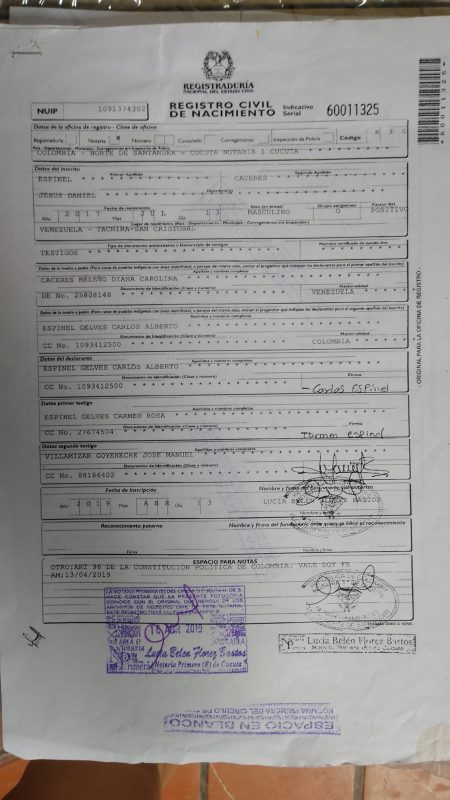 REGISTRADURÍA
NACIONAL DEL ESTADO CIVIL
NUIP 1091374302
REGISTRO CIVIL
DE NACIMIENTO
Indicativo
Serial 60011325
*60011325*
Datos de la oficina de registro - Clase de oficina
Registraduría Notaría X Número Consulado Corregimiento Inspección de Policía Código N 3 C
País - Departamento - Municipio - Corregimiento e/o Inspección de Policía
COLOMBIA - NORTE DE SANTANDER - CUCUTA NOTARIA 1 CUCUTA
Datos del inscrito
Primer Apellido Segundo Apellido
ESPINEL CACERES
Nombre(s)
JESUS DANIEL
Fecha de nacimiento Sexo (en letras) Grupo sanguíneo Factor RH
Año 2017 Mes JUL Día 13 MASCULINO O POSITIVO
Lugar de nacimiento (País - Departamento - Municipio - Corregimiento e/o Inspección)
VENEZUELA - TACHIRA-SAN CRISTOBAL
Tipo de documento antecedente o Declaración de testigos Número certificado de nacido vivo
TESTIGOS
Apellidos y nombres completos
CACERES BELEÑO DIANA CAROLINA
Documento de Identificación (Clase y número) Nacionalidad
DE No. 25808148 VENEZUELA
Apellidos y nombres completos
ESPINEL GELVES CARLOS ALBERTO
Documento de Identificación (Clase y número) Nacionalidad
CC No. 1093412500 COLOMBIA
Datos del declarante
Apellidos y nombres completos
ESPINEL GELVES CARLOS ALBERTO
Documento de Identificación (Clase y número) Firma
CC No. 1093412500 Carlos Espinel
Datos primer testigo
Apellidos y nombres completos
ESPINEL GELVES CARMEN ROSA
Documento de Identificación (Clase y número) Firma
CC No. 27674504 Carmen espinel
Datos segundo testigo
Apellidos y nombres completos
VILLAMIZAR GOYENECHE JOSE MANUEL
Documento de Identificación (Clase y número)
CC No. 88186402
Fecha de inscripción
Año 2019 Mes ABR Día 13
LUCIA BELEN FLOREZ BASTOS
Nombre y Firma
Reconocimiento paterno
Nombre y firma del funcionario ante quien se hace el reconocimiento
Firma Nombre y Firma
ESPACIO PARA NOTAS
OTRO:ART 96 DE LA CONSTITUCIÓN POLITICA DE COLOMBIA. VALE DOY FE
AM/13/04/2019
- ORIGINAL PARA LA OFICINA DE REGISTRO -
ABR 2019
Lucia Belen Florez Bastos
Notaria Primera (E) de Cúcuta
Lucia Belén Florez Bastos
Notaria Primera (E) de Cúcuta
NOTARIA PRIMERA DEL CIRCULO DE
ESPACIO EN BLANCO